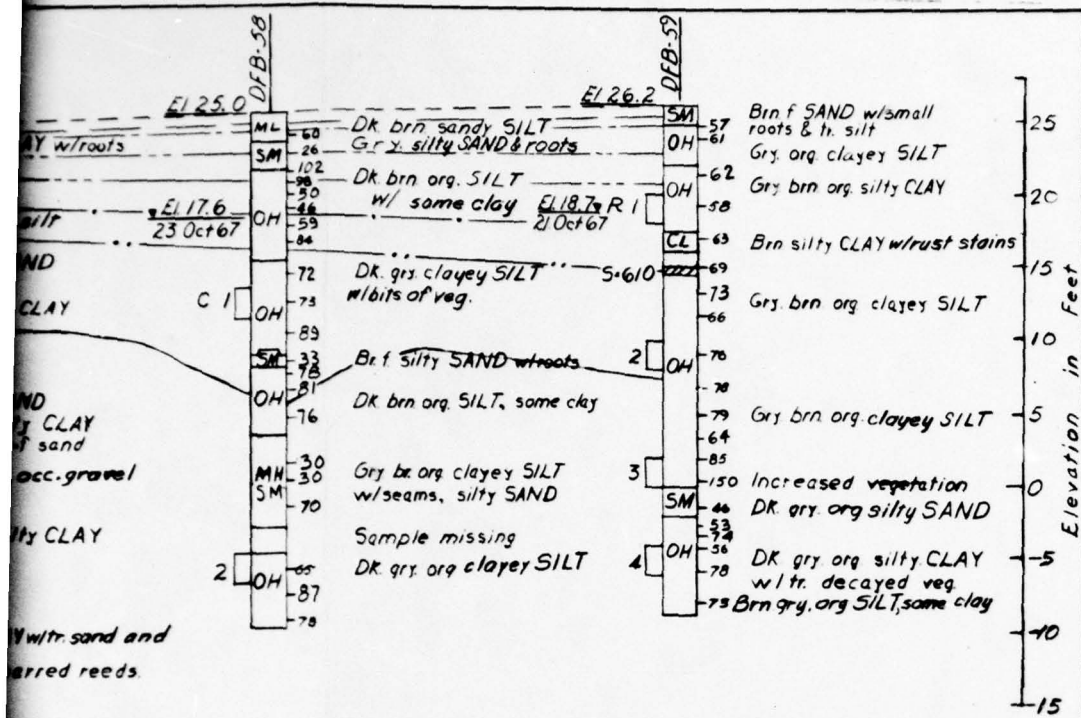 DFB-58
DFB-59
El 25.0
El 26.2
AY w/roots
silt
AND
CLAY
ND
ty CLAY
of sand
occ. gravel
lty CLAY
Y w/tr. sand and
arred reeds.
El 17.6
23 Oct 67
C 1
2
ML
SM
OH
OH
SM
OH
MH
SM
OH
60
26
102
98
50
46
59
84
72
73
89
33
78
81
76
30
30
70
65
87
78
Dk. brn sandy SILT
Gry. silty SAND & roots
Dk. brn org. SILT
w/ some clay
Dk. gry. clayey SILT
w/bits of veg.
Br. f. silty SAND w/roots
Dk brn org. SILT, some clay
Gry br. org clayey SILT
w/seams, silty SAND
Sample missing
Dk. gry. org clayey SILT
El 18.7
21 Oct 67
R 1
S-610
2
3
4
SM
OH
OH
CL
OH
SM
OH
57
61
62
58
63
69
73
66
76
78
79
64
85
150
46
53
74
56
78
75
Brn f SAND w/small
roots & tr. silt
Gry. org. clayey SILT
Gry brn org. silty CLAY
Brn silty CLAY w/rust stains
Gry. brn org clayey SILT
Gry brn org. clayey SILT
Increased vegetation
Dk. gry. org silty SAND
Dk gry. org silty CLAY
w/tr. decayed veg.
Brn gry. org SILT, some clay
25
20
15
10
5
0
-5
-10
-15
Elevation in Feet